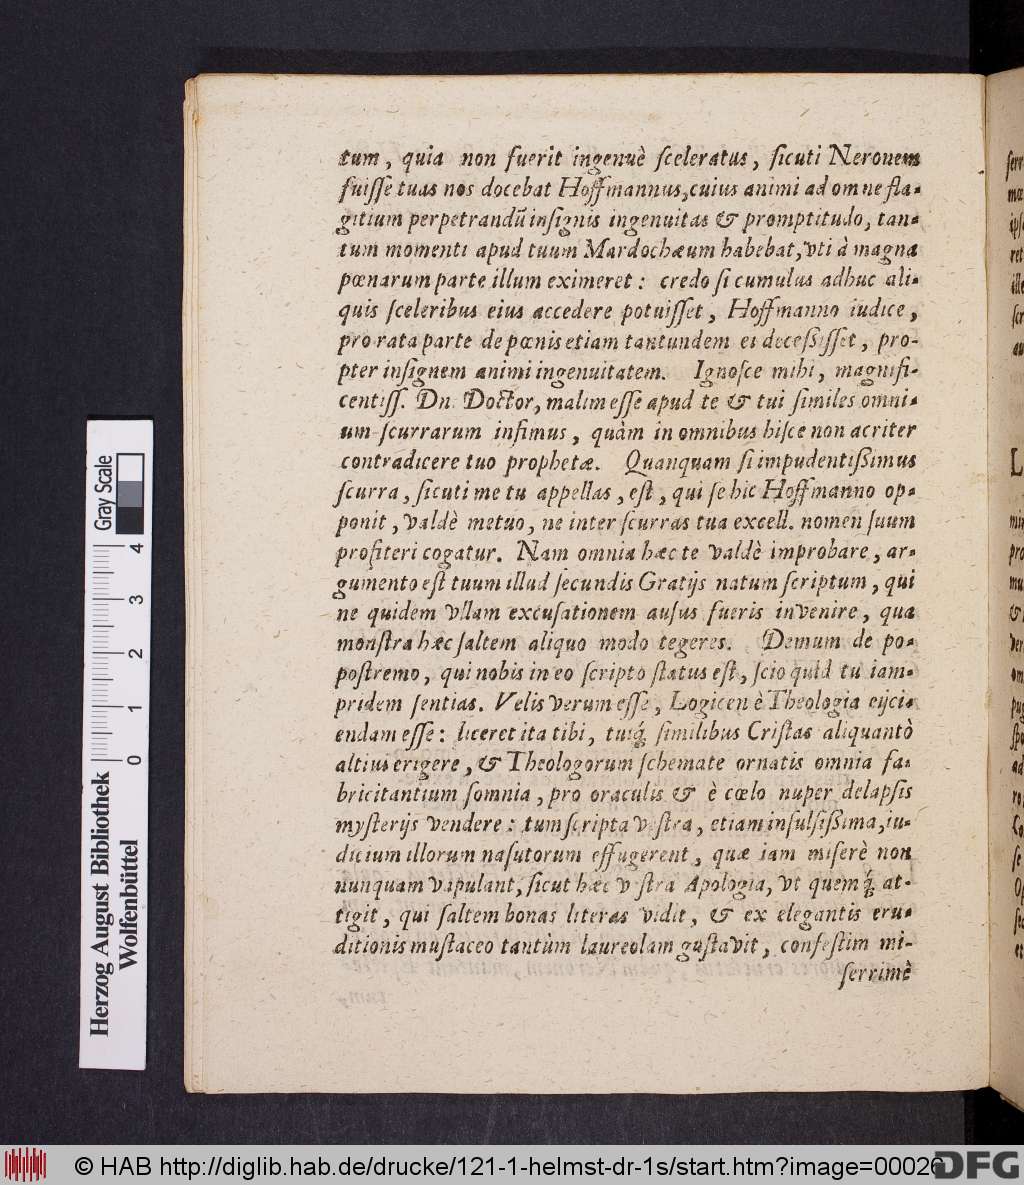 tum, quia non fuerit ingenuè sceleratus, sicuti Neronem
fuisse tuas nos docebat Hoffmannus, cuius animi ad omne fla-
gitium perpetrandũ insignis ingenuitas & promptitudo, tan-
tum momenti apud tuum Mardochæum habebat, vti à magna
pœnarum parte illum eximeret: credo si cumulus adhuc ali-
quis sceleribus eius accedere potuisset, Hoffmanno iudice,
pro rata parte de pœnis etiam tantundem ei decessisset, pro-
pter insignem animi ingenuitatem. Ignosce mihi, magnifi-
centiss. Dn. Doctor, malim esse apud te & tui similes omni-
um scurrarum infimus, quàm in omnibus hisce non acriter
contradicere tuo prophetæ. Quanquam si impudentißimus
scurra, sicuti me tu appellas, est, qui se hic Hoffmanno op-
ponit, valdè metuo, ne inter scurras tua excell. nomen suum
profiteri cogatur. Nam omnia hæc te valdè improbare, ar-
gumento est tuum illud secundis Gratijs natum scriptum, qui
ne quidem vllam excusationem ausus fueris invenire, qua
monstra hæc saltem aliquo modo tegeres. Demum de po-
postremo, qui nobis in eo scripto status est, scio quid tu iam-
pridem sentias. Velis verum esse, Logicen è Theologia eijci-
endam esse: liceret ita tibi, tuiq́; similibus Cristas aliquantò
altius erigere, & Theologorum schemate ornatis omnia fa-
bricitantium somnia, pro oraculis & è cœlo nuper delapsis
mysterijs vendere: tum scripta vestra, etiam insulsißima, iu-
dicium illorum nasutorum effugerent, quæ iam miserè non
nunquam vapulant, sicut hæc vestra Apologia, vt quemq́; at-
tigit, qui saltem bonas literas vidit, & ex elegantis eru-
ditionis mustaceo tantùm laureolam gustavit, confestim mi-
serrimè
Herzog August Bibliothek
Wolfenbüttel
0 1 2 3 4
Gray Scale
© HAB http://diglib.hab.de/drucke/121-1-helmst-dr-1s/start.htm?image=00026
DFG